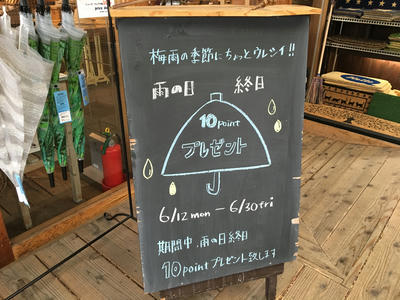 梅雨の季節にちょっとウレシイ!!
雨の日 終日
10point
プレゼント
6/12mon-6/30fri
期間中.雨の日終日
10pointプレゼント致します